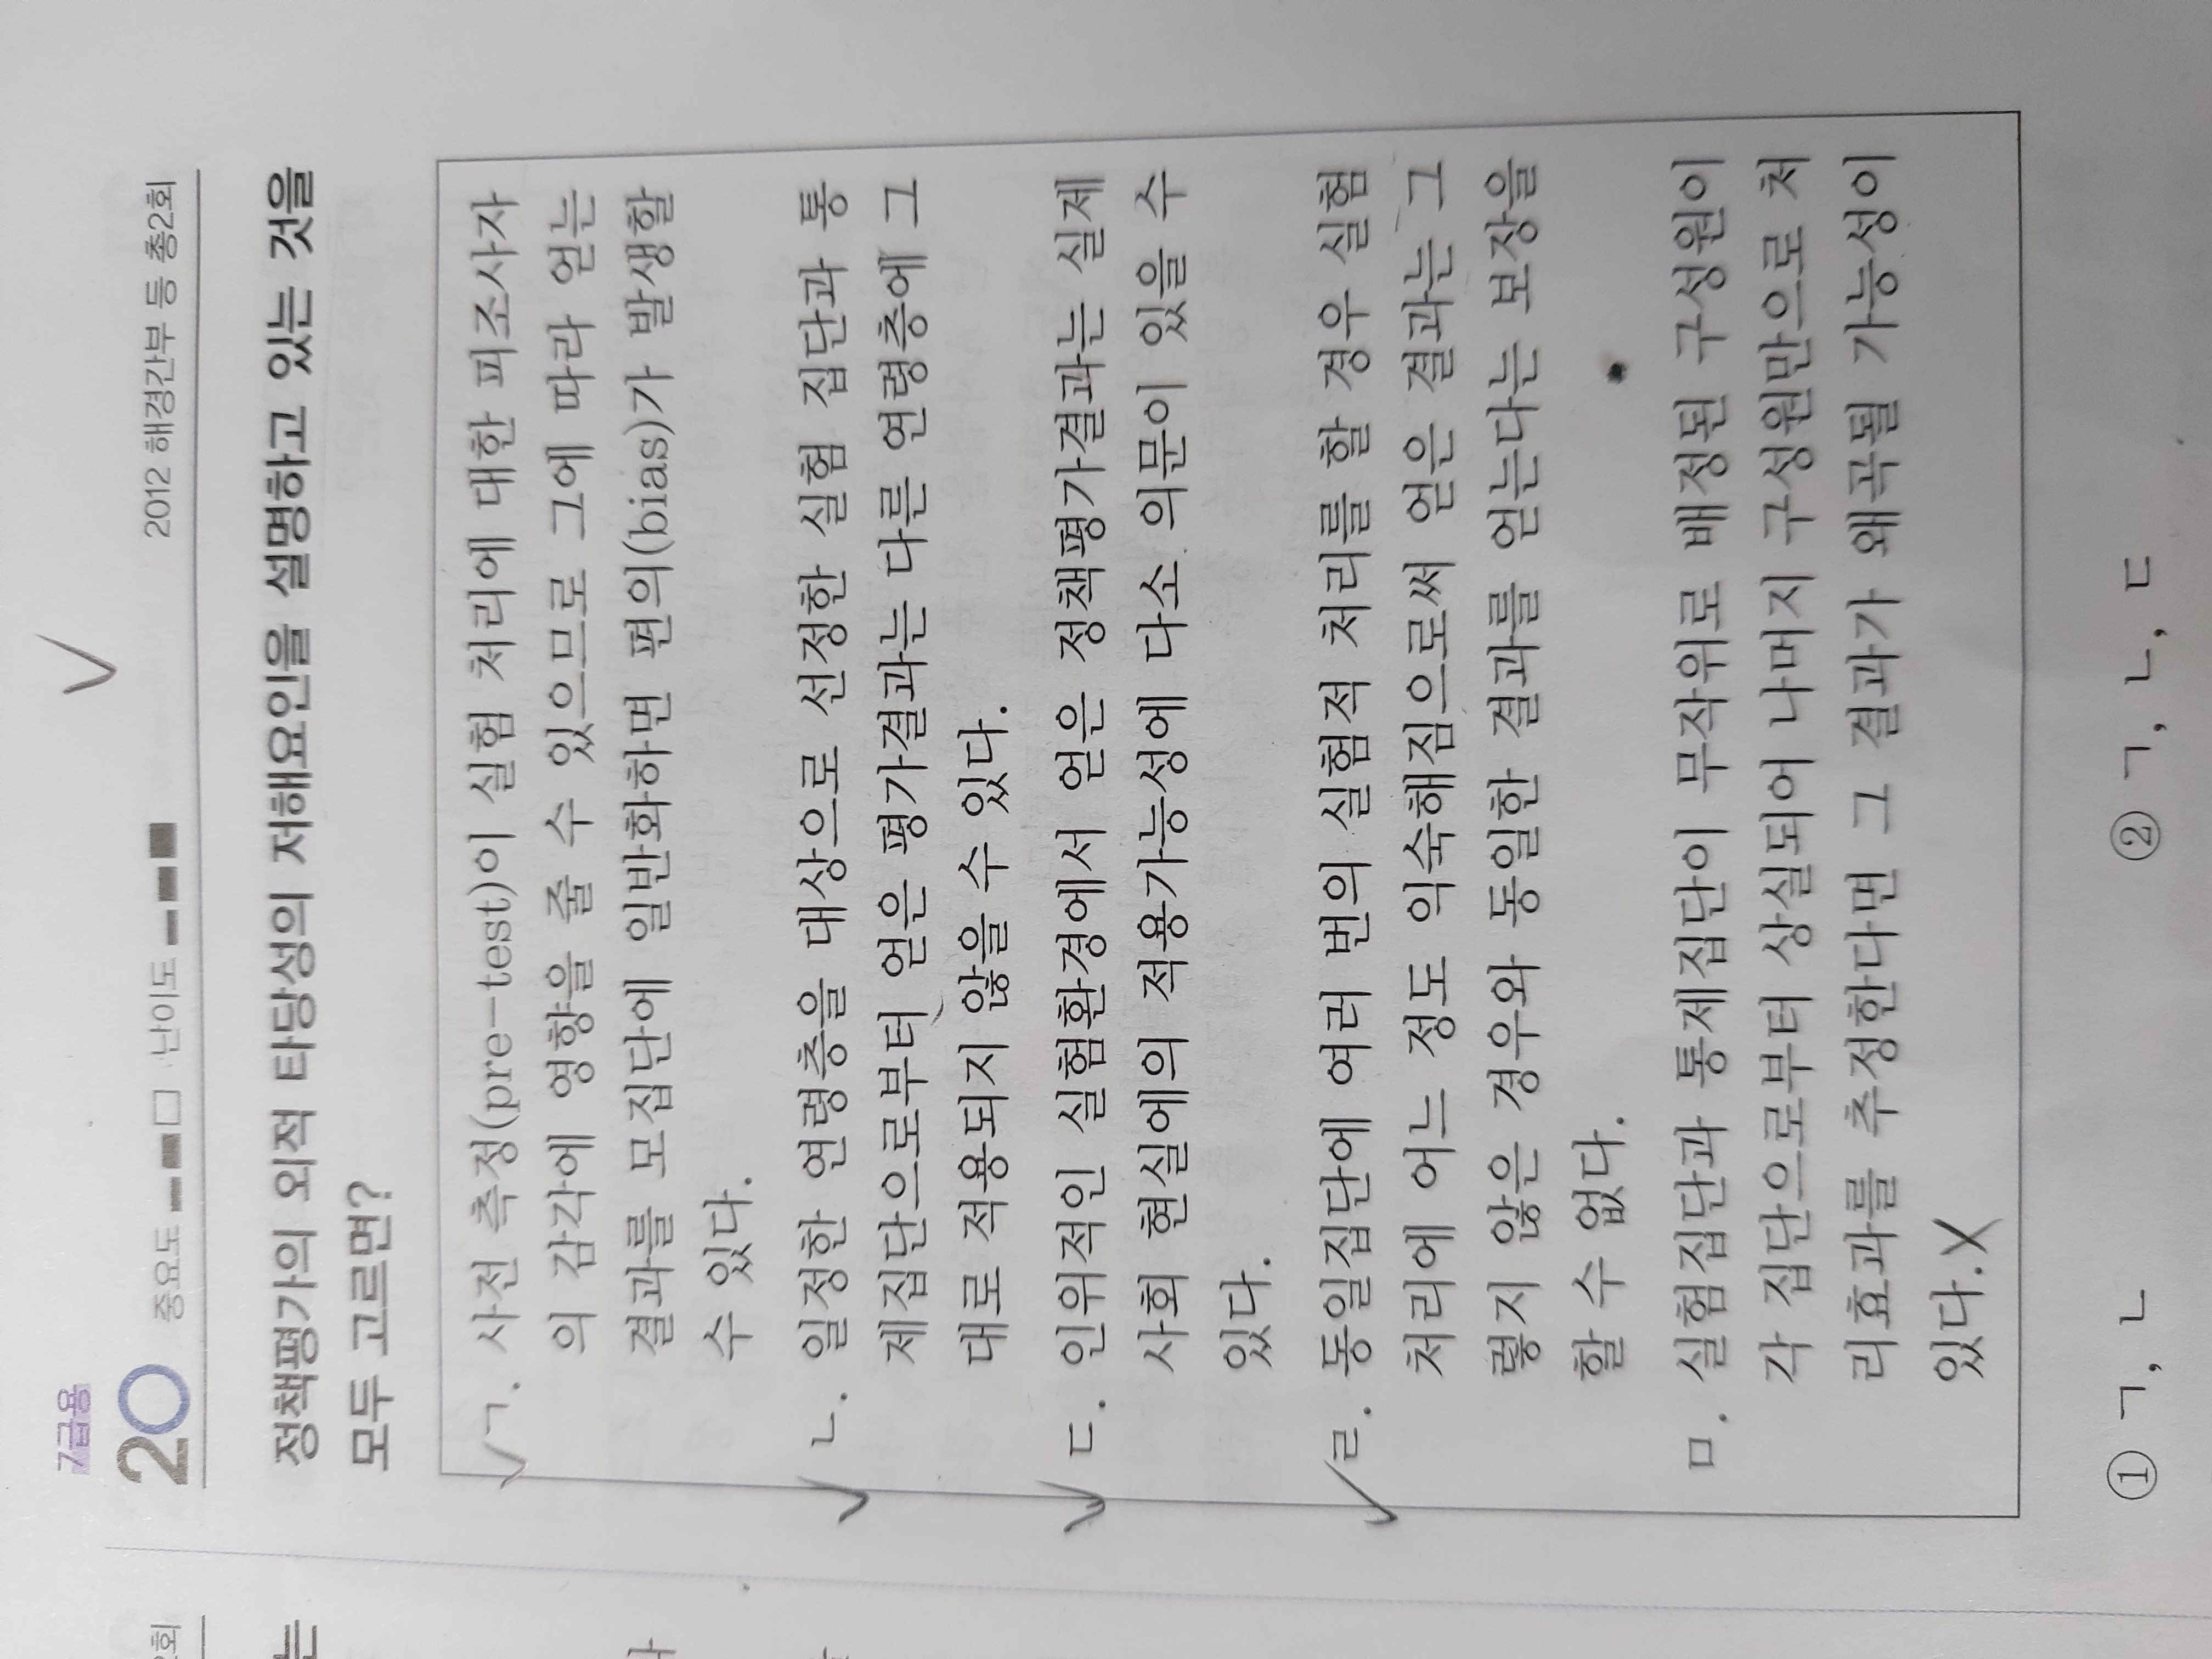 7급용
20 중요도 난이도 2012 해경간부 등 총2회
정책평가의 외적 타당성의 저해요인을 설명하고 있는 것을
모두 고르면?
ㄱ. 사전 측정(pre-test)이 실험 처리에 대한 피조사자
의 감각에 영향을 줄 수 있으므로 그에 따라 얻는
결과를 모집단에 일반화하면 편의(bias)가 발생할
수 있다.
ㄴ. 일정한 연령층을 대상으로 선정한 실험 집단과 통
제집단으로부터 얻은 평가결과는 다른 연령층에 그
대로 적용되지 않을 수 있다.
ㄷ. 인위적인 실험환경에서 얻은 정책평가결과는 실제
사회 현실에의 적용가능성에 다소 의문이 있을 수
있다.
ㄹ. 동일집단에 여러 번의 실험적 처리를 할 경우 실험
처리에 어느 정도 익숙해짐으로써 얻은 결과는 그
렇지 않은 경우와 동일한 결과를 얻는다는 보장을
할 수 없다.
ㅁ. 실험집단과 통제집단이 무작위로 배정된 구성원이
각 집단으로부터 상실되어 나머지 구성원만으로 처
리효과를 추정한다면 그 결과가 왜곡될 가능성이
있다. X
① ㄱ, ㄴ ② ㄱ, ㄴ, ㄷ